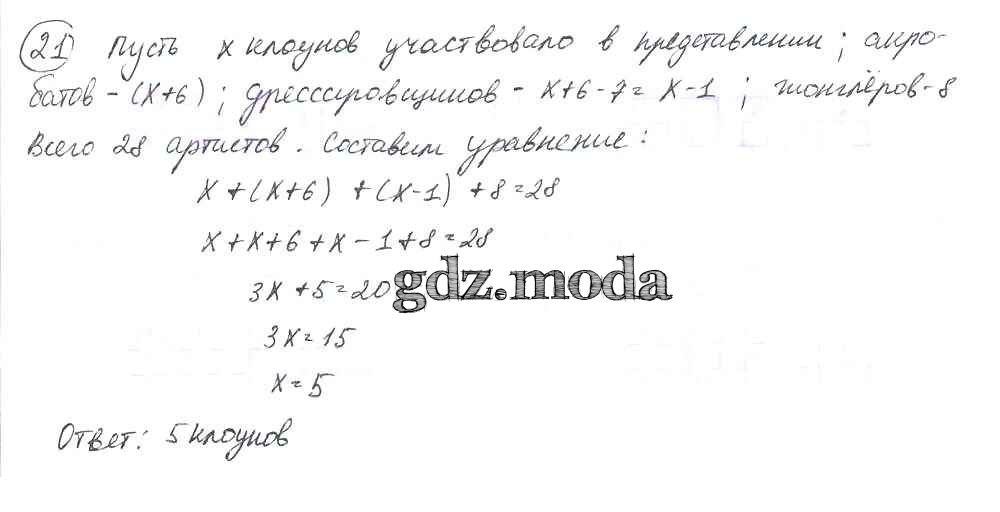 21) Пусть x клоунов участвовало в представлении; акро-
батов - (x+6); дрессировщиков - x+6-7=x-1; жонглёров-8
Всего 28 артистов. Составим уравнение:
x+(x+6) +(x-1) +8=28
x+x+6+x-1+8=28
3x+5=20
gdz.moda
3x=15
x=5
Ответ: 5 клоунов